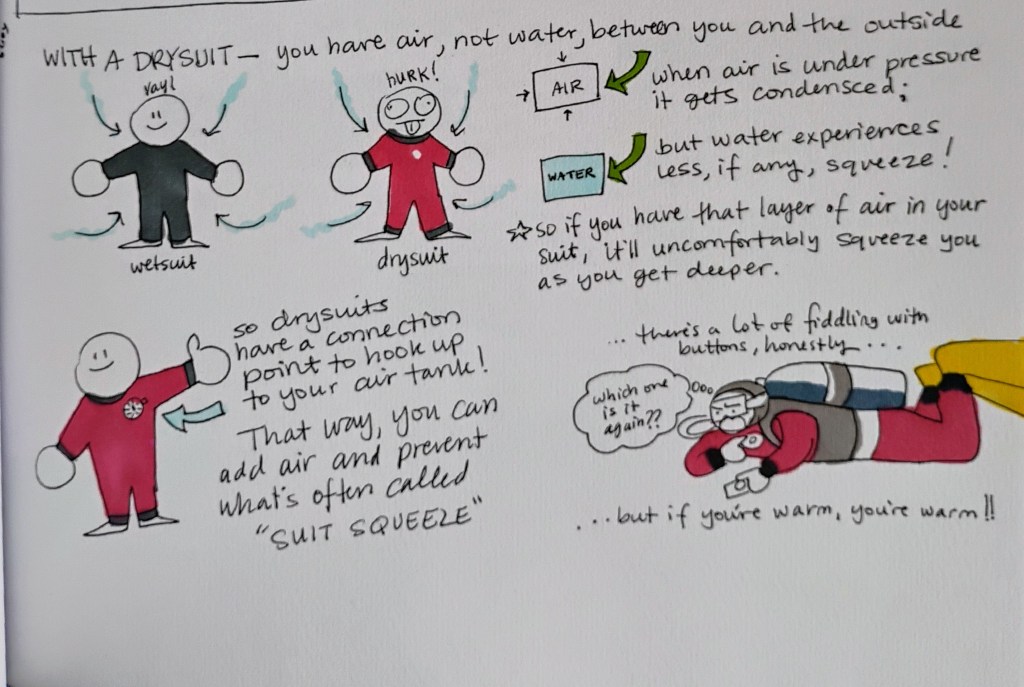 WITH A DRYSUIT — you have air, not water, between you and the outside
yay!
wetsuit
hurk!
drysuit
AIR
when air is under pressure
it gets condensced;
WATER
but water experiences
less, if any, squeeze!
☆ so if you have that layer of air in your
suit, it'll uncomfortably squeeze you
as you get deeper.
so drysuits
have a connection
point to hook up
to your air tank!
That way, you can
add air and prevent
what's often called
"SUIT SQUEEZE"
... there's a lot of fiddling with
buttons, honestly...
which one
is it
again??
...but if you're warm, you're warm!!